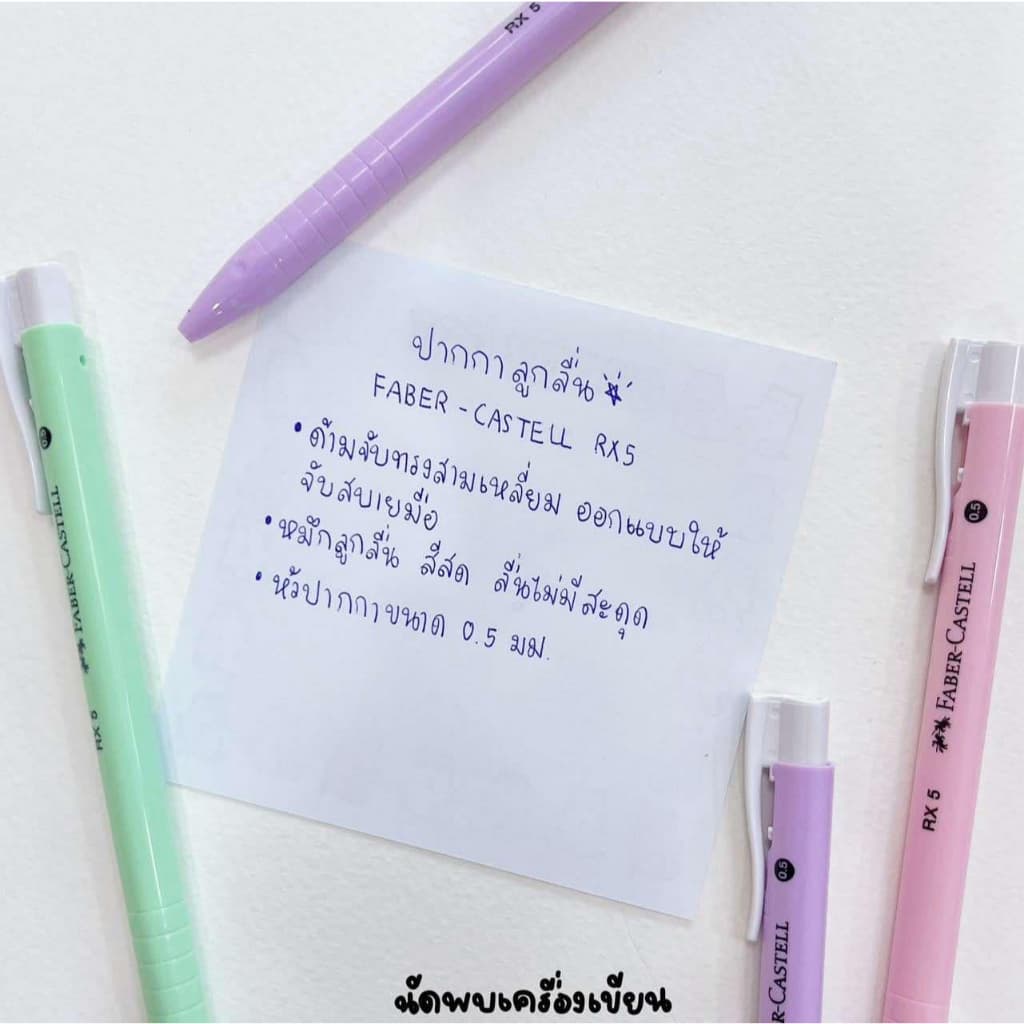 RX 5
ปากกาลูกลื่น
FABER-CASTELL RX5
• ด้ามจับทรงสามเหลี่ยม ออกแบบให้
จับสบายมือ
• หมึกลูกลื่น สีสด ลื่นไม่มีสะดุด
• หัวปากกาขนาด 0.5 มม.
0.5
FABER-CASTELL
RX 5
0.5
FABER-CASTELL
RX 5
0.5
R-CASTELL
นัดพบเครื่องเขียน